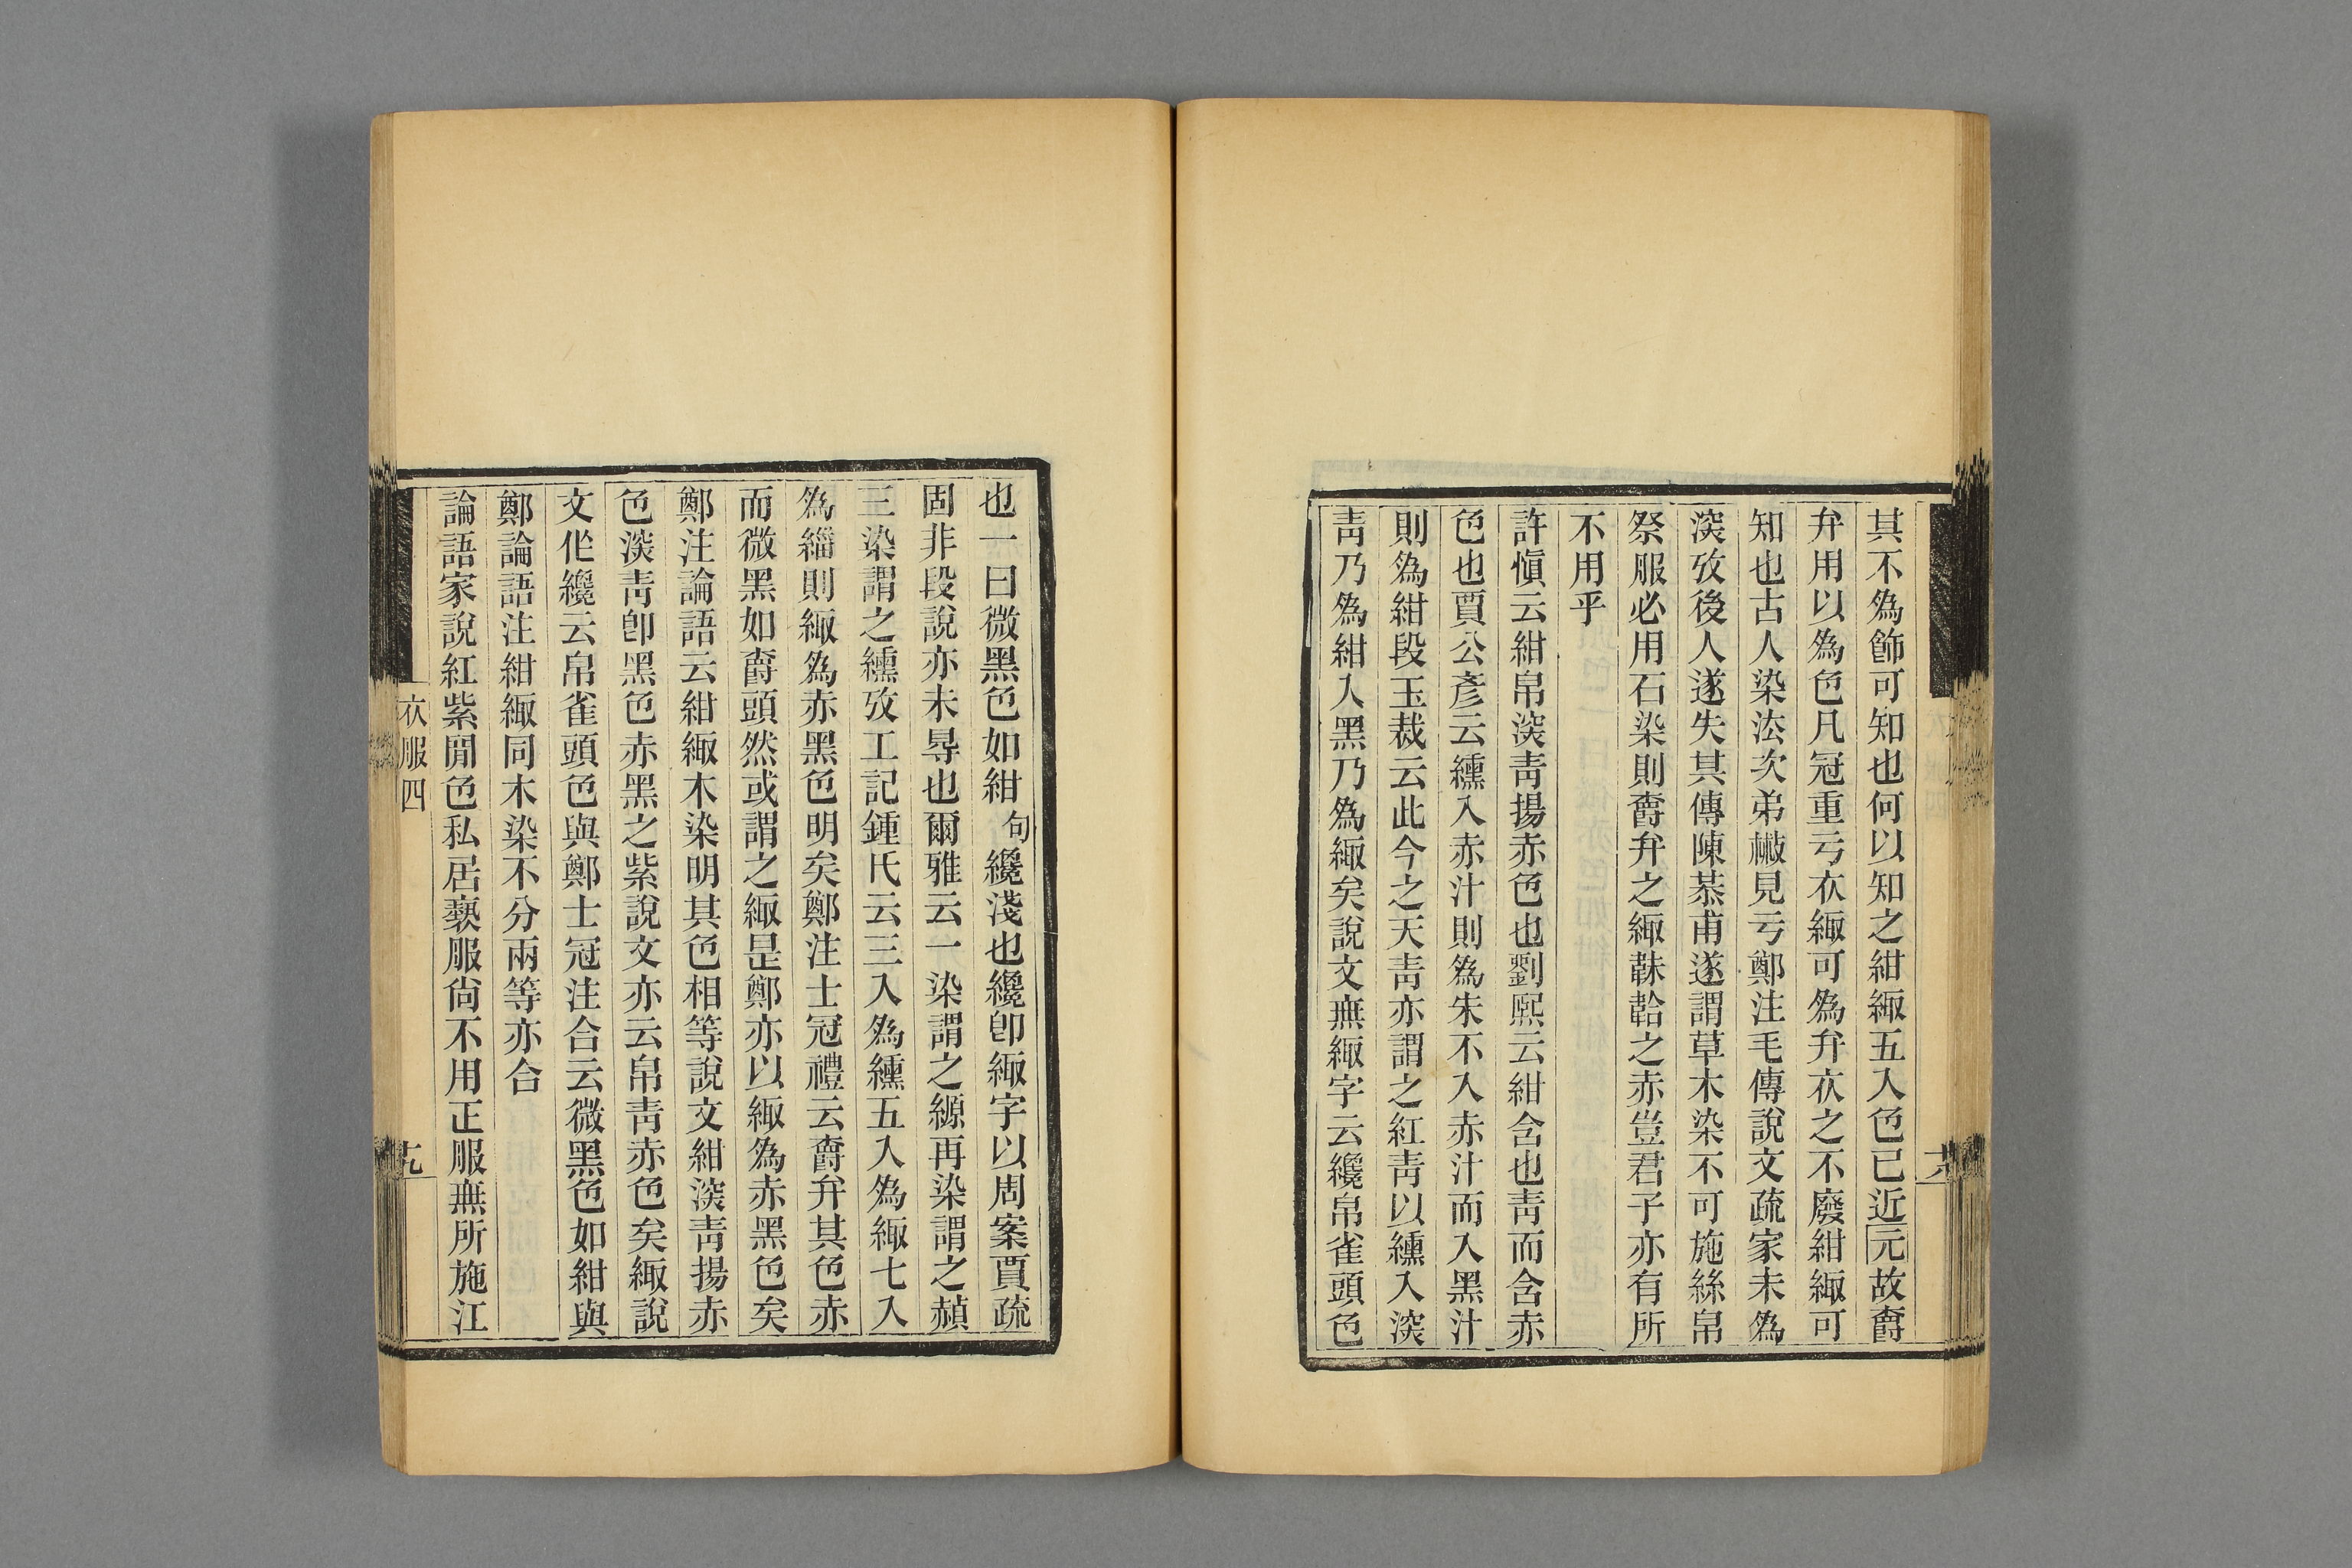 其不爲飾可知也何以知之紺緅五入色已近元故𪇱
弁用以爲色凡冠重亏衣緅可爲弁衣之不廢紺緅可
知也古人染法次弟檚見亏鄭注毛傳說文疏家未爲
深攷後人遂失其傳陳恭甫遂謂草木染不可施絲帛
祭服必用石染則𪇱弁之緅韎韐之赤豈君子亦有所
不用乎
許愼云紺帛深靑揚赤色也劉熙云紺含也靑而含赤
色也賈公彥云纁入赤汁則爲朱不入赤汁而入黑汁
則爲紺段玉裁云此今之天靑亦謂之紅靑以纁入深
靑乃爲紺入黑乃爲緅矣說文無緅字云纔帛雀頭色
六
也一曰微黑色如紺句纔淺也纔卽緅字以周案賈疏
固非段說亦未㝵也爾雅云一染謂之縓再染謂之赬
三染謂之纁攷工記鍾氏云三入爲纁五入爲緅七入
爲緇則緅爲赤黑色明矣鄭注士冠禮云𪇱弁其色赤
而微黑如𪇱頭然或謂之緅是鄭亦以緅爲赤黑色矣
鄭注論語云紺緅木染明其色相等說文紺深靑揚赤
色深靑卽黑色赤黑之紫說文亦云帛靑赤色矣緅說
文作纔云帛雀頭色與鄭士冠注合云微黑色如紺與
鄭論語注紺緅同木染不分兩等亦合
論語家說紅紫閒色私居褻服尙不用正服無所施江
衣服四
十九